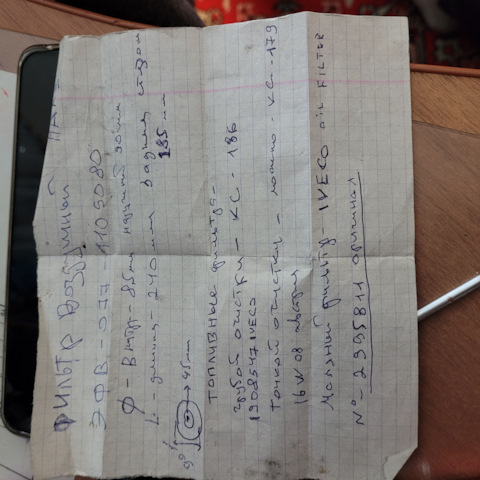 Фильтр воздушный
ЭФВ-077-1109080
ф-внутр-85мм наружний 90мм
L-длинна-240мм задняя
185мм
90° 45мм
топливные фильтра-
грубой очистки-КС-186
1908547 IVECO
тонкой очистки - можно-КС-179
16 W 08 австрия
Масляный фильтр-IVECO OIL FILTER
N°-2995811 оригинал